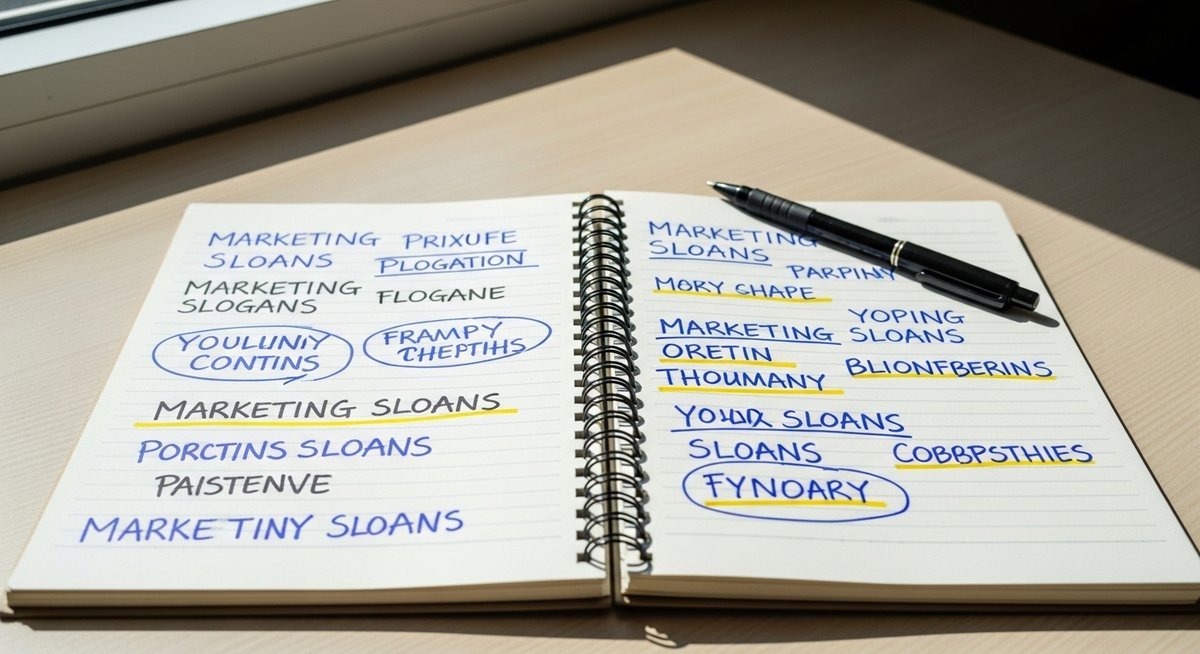 MARKETING SLOANS
PRIXUFE PLOGATION
MARKETING SLOGANS
FLOGANE
YOULUNIY CONTINS
FRAMPY CHEPTIHS
MARKETING SLOANS
PORCTINS SLOANS
PAISTENVE
MARKE TINY SLOANS
MARKETING
SLOANS
PARPINY
MORY GHAPE
MARKETING
ORETIN
THOUMANY
YOPING
SLOANS
BLIONFBERINS
SLOANS
SLOANS
COBBPSTHIES
FYNOARY